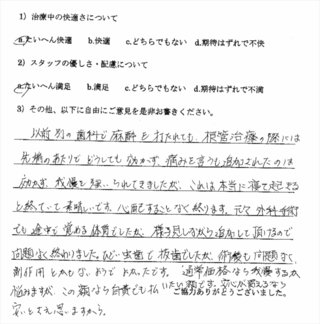 1) 治療中の快適さについて
a.たいへん快適 b.快適 c.どちらでもない d.期待はずれで不快
2) スタッフの優しさ・配慮について
a.たいへん満足 b.満足 c.どちらでもない d.期待はずれで不満
3) その他、以下に自由にご意見を是非お書きください。
以前別の歯科で麻酔を打たれても、根管治療の際には
先端のあたりでどうしても効かず、痛みを言うも追加されたのは
効かず、我慢を強いられてきましたが、これは本当に寝て起きる
と終っていて素晴しいです。心配することなく終ります。元々外科手術
でも途中で覚める体質でしたが、様子見しながら追加して頂けるので
問題なく終わりました。ひどい虫歯で抜歯でしたが、術後も問題なく、
副作用とかもないようでよかったです。通常価格なら我慢するか
悩みますが、この額なら自費でも払いたい額です。安心が買えるなら
ご協力ありがとうございました。
安いとさえ思いますから。